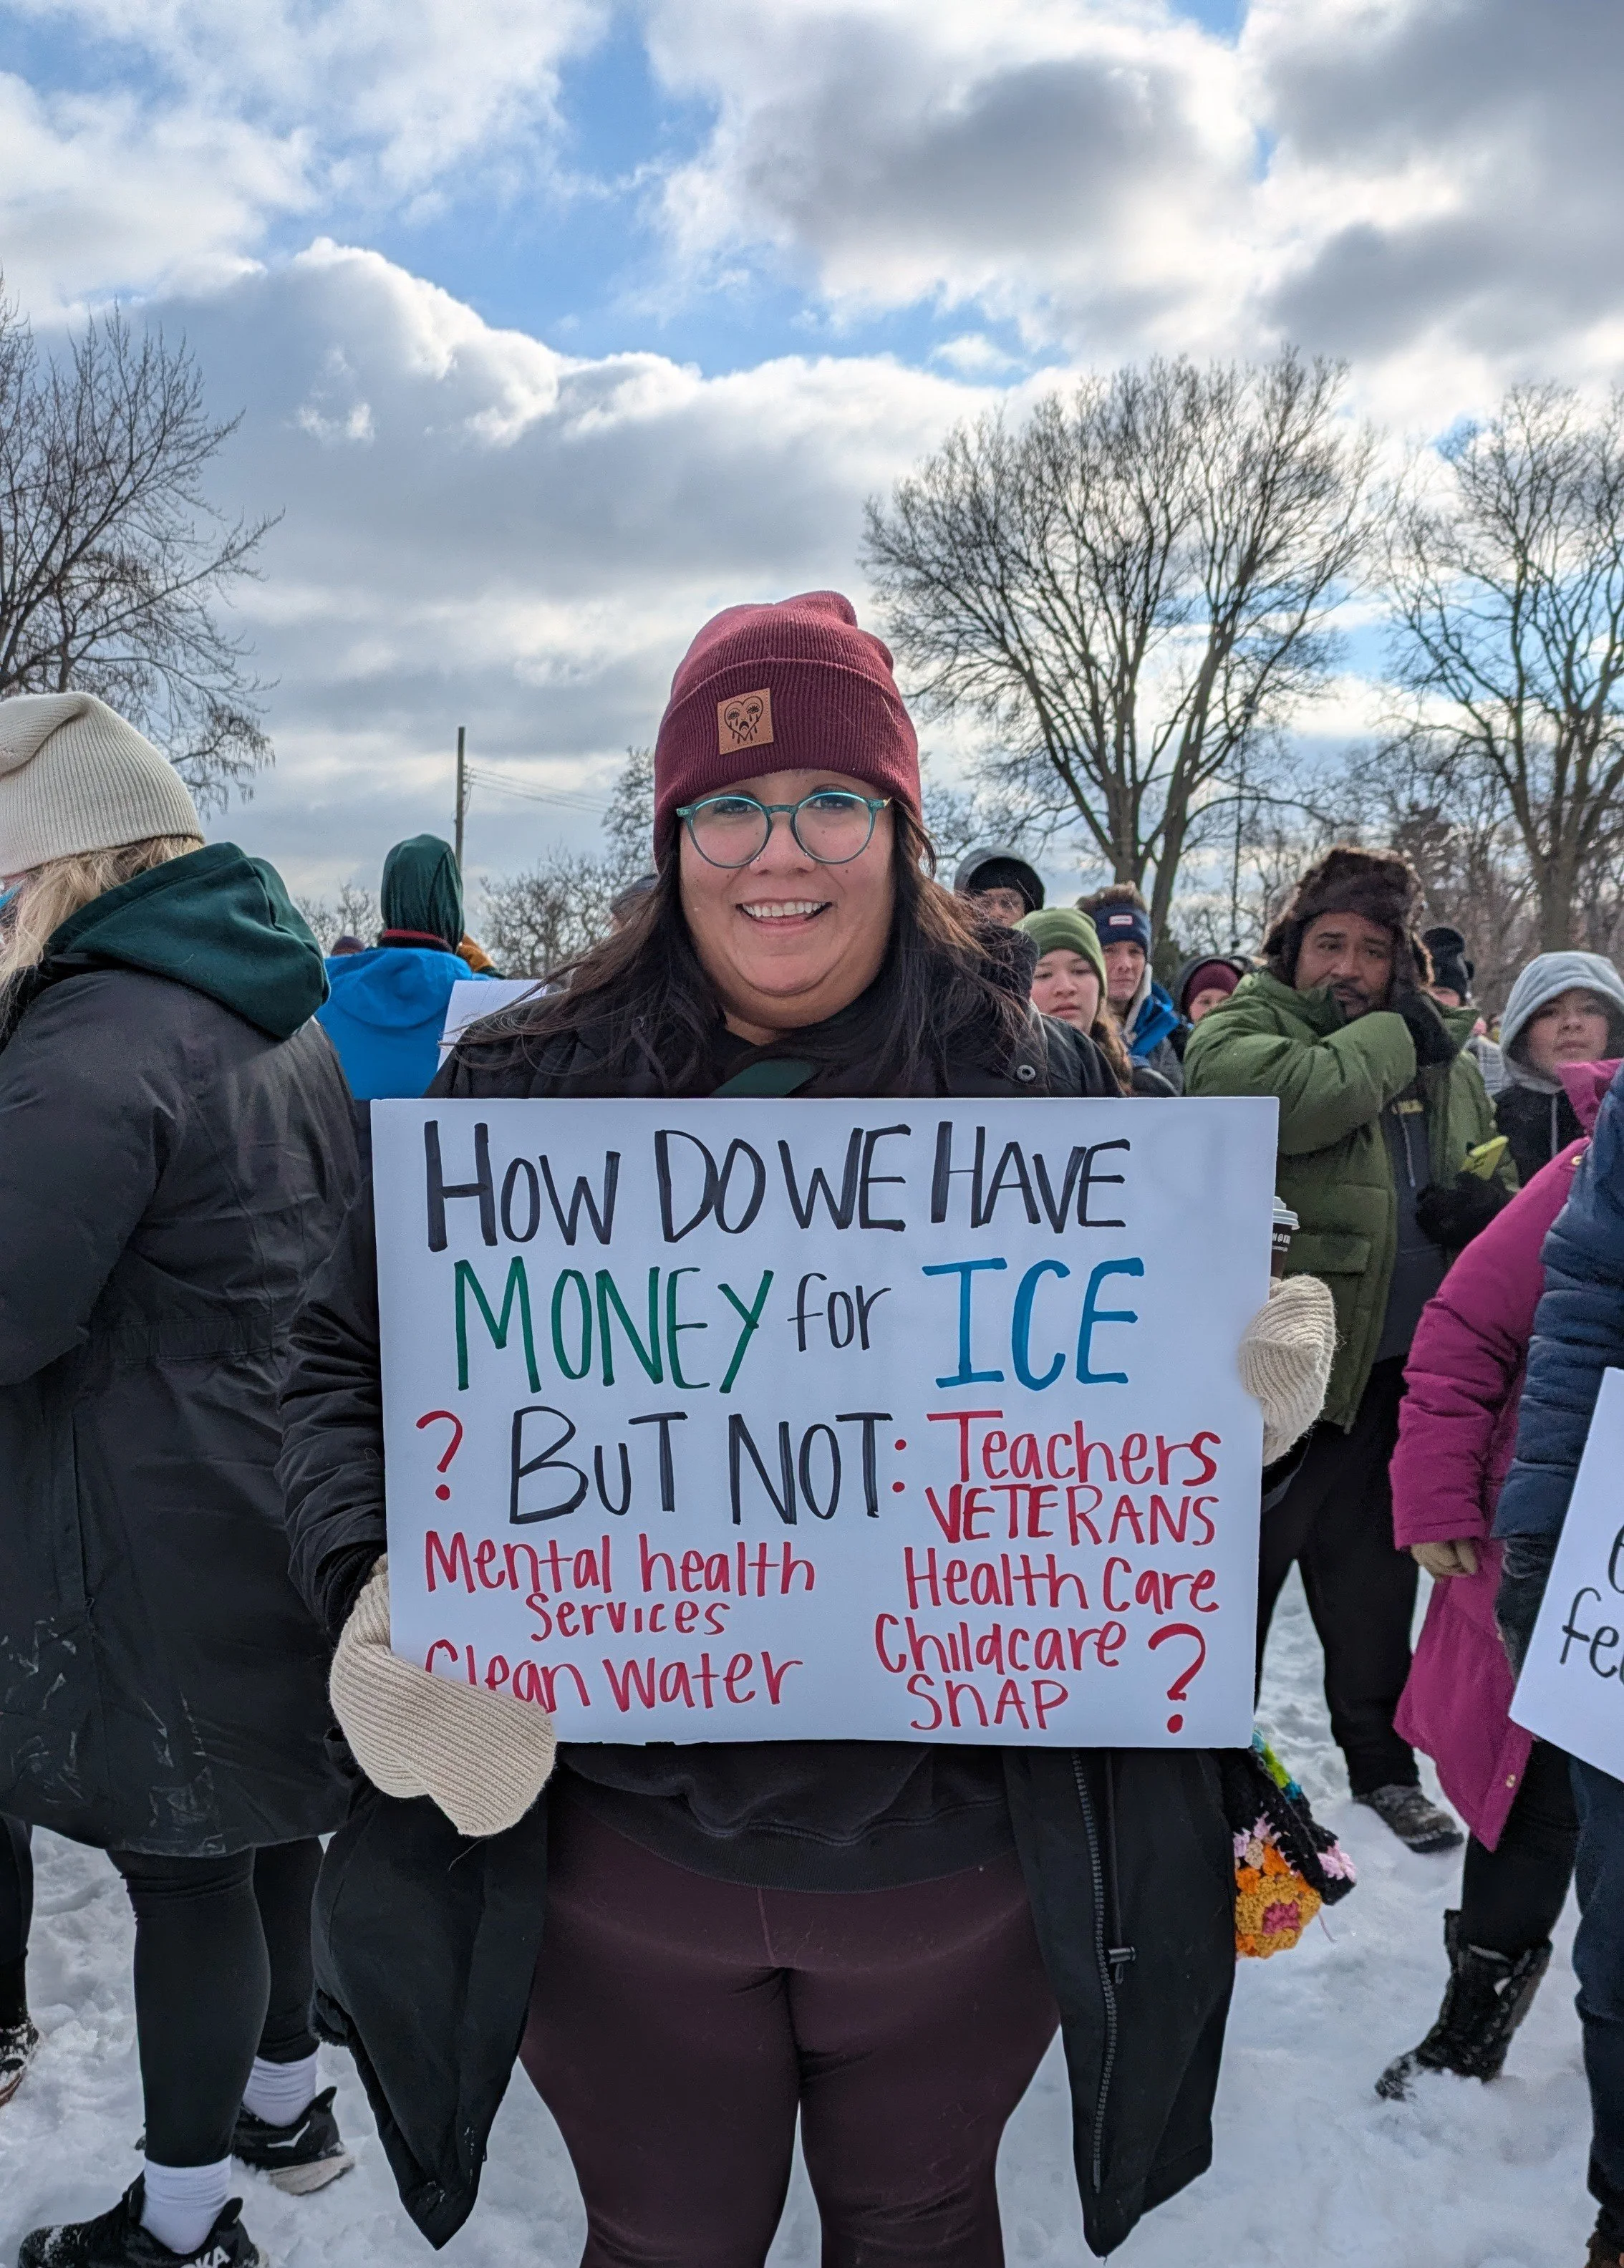 HOW DO WE HAVE
MONEY for ICE
? BUT NOT: Teachers
VETERANS
Mental health
Services
Clean water
Health Care
Childcare
SNAP ?